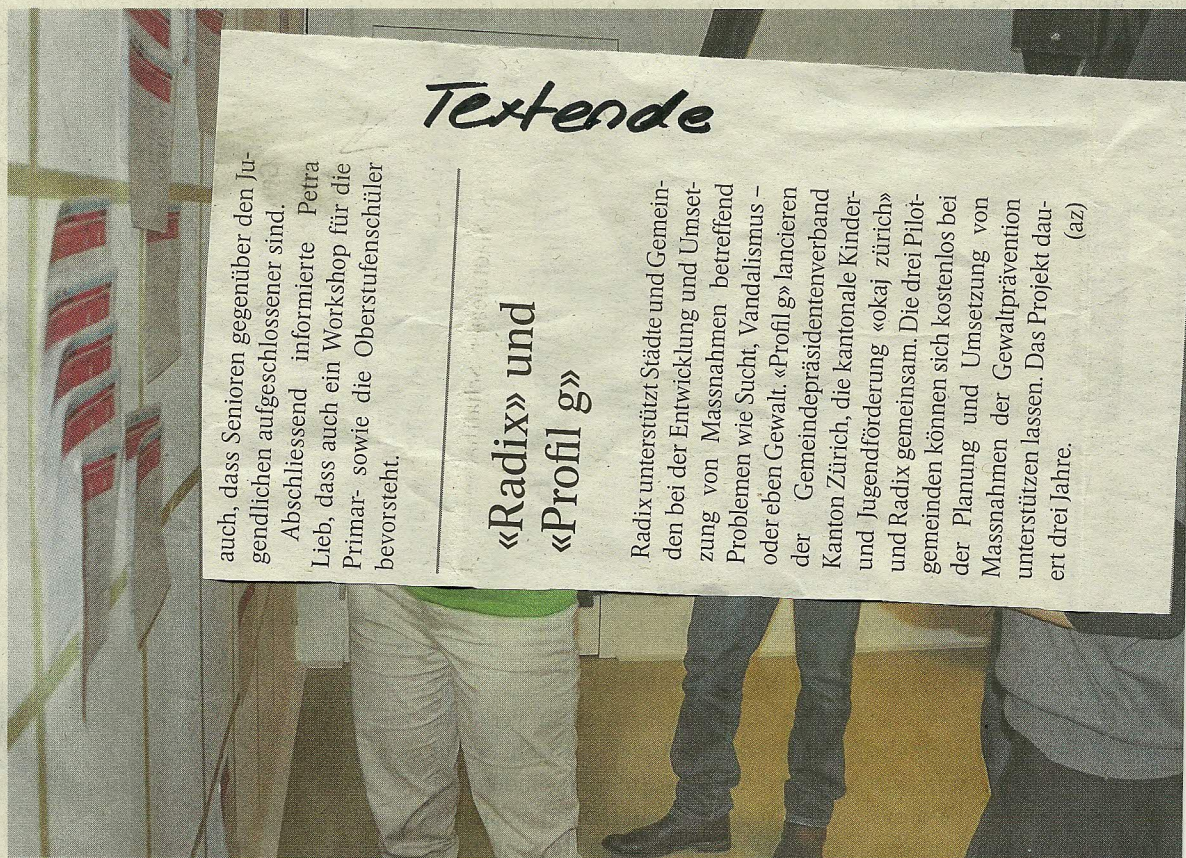 Textende
auch, dass Senioren gegenüber den Ju-
gendlichen aufgeschlossener sind.
Abschliessend informierte Petra
Lieb, dass auch ein Workshop für die
Primar- sowie die Oberstufenschüler
bevorsteht.
«Radix» und
«Profil g»
Radix unterstützt Städte und Gemein-
den bei der Entwicklung und Umset-
zung von Massnahmen betreffend
Problemen wie Sucht, Vandalismus –
oder eben Gewalt. «Profil g» lancieren
der Gemeindepräsidentenverband
Kanton Zürich, die kantonale Kinder-
und Jugendförderung «okaj zürich»
und Radix gemeinsam. Die drei Pilot-
gemeinden können sich kostenlos bei
der Planung und Umsetzung von
Massnahmen der Gewaltprävention
unterstützen lassen. Das Projekt dau-
ert drei Jahre.
(az)